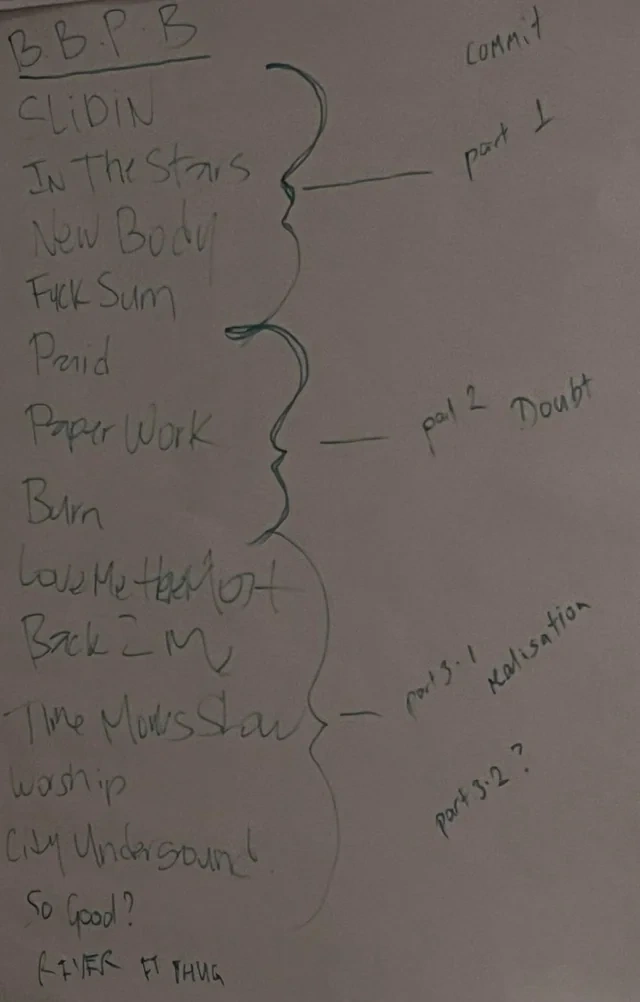 B.B.P.B
commit
SLiDiN
part 1
IN The Stars
New Body
Fuck Sum
Paid
part 2 Doubt
Paper Work
Burn
Love Me the Most
Back 2 My
part 3.1 realisation
Time Moves Slow
Worship
part 3.2?
City Undersound
So Good?
RIVER FT THUG